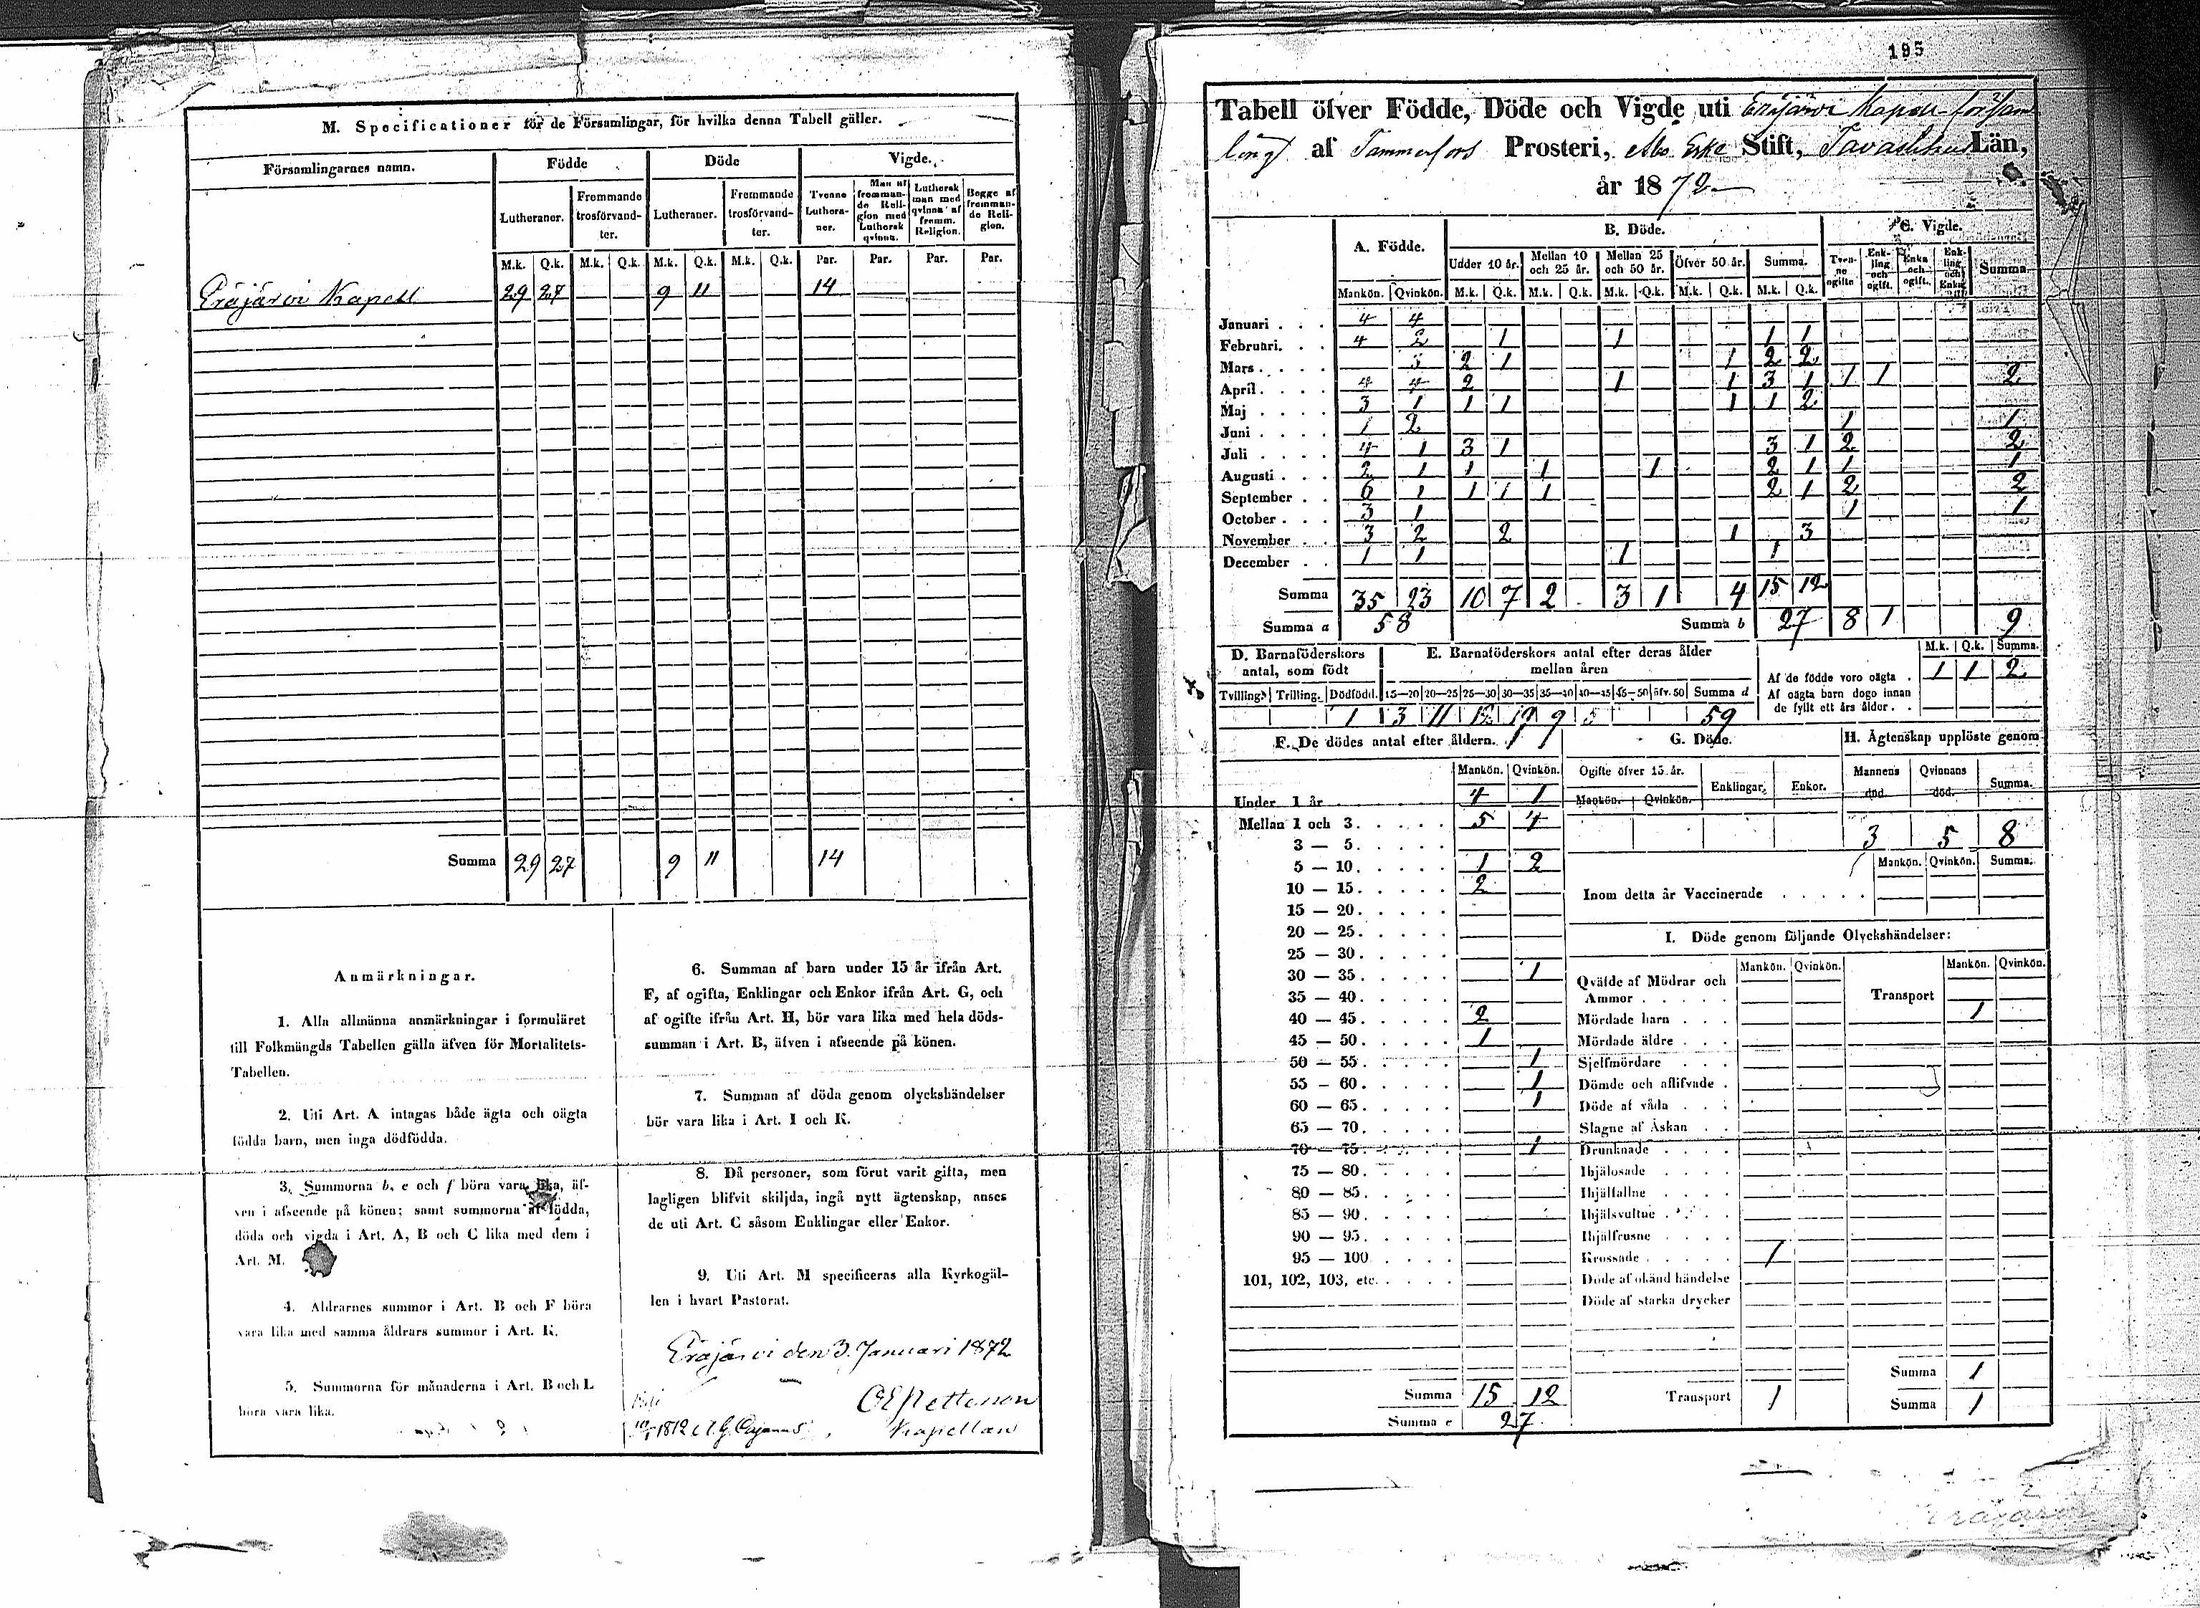 M. Specificationer för de Församlingar, för hvilka denna Tabell gäller.
Församlingarnes namn. Födde Döde Vigde.
Lutheraner. Fremmande trosförvandter. Lutheraner. Fremmande trosförvandter. Tvenne Lutheraner. Man af fremmande Religion med Luthersk qvinna. Luthersk man med qvinna af fremm. Religion. Begge af fremmande Religion.
M.k. Q.k. M.k. Q.k. M.k. Q.k. M.k. Q.k. Par. Par. Par. Par.
Eräjärvi Kapell 29 27 9 11 14
Summa 29 27 9 11 14
Anmärkningar.
1. Alla allmänna anmärkningar i formuläret
till Folkmängds Tabellen gälla äfven för Mortalitets-
Tabellen.
2. Uti Art. A intagas både ägta och oägta
födda barn, men inga dödfödda.
3. Summorna b, e och f böra vara lika, äf-
ven i afseende på könen; samt summorna af födda,
döda och vigda i Art. A, B och C lika med dem i
Art. M.
4. Åldrarnes summor i Art. B och F böra
vara lika med samma åldrars summor i Art. K.
5. Summorna för månaderna i Art. B och L
böra vara lika.
6. Summan af barn under 15 år ifrån Art.
F, af ogifta, Enklingar och Enkor ifrån Art. G, och
af ogifte ifrån Art. H, bör vara lika med hela döds-
summan i Art. B, äfven i afseende på könen.
7. Summan af döda genom olyckshändelser
bör vara lika i Art. I och K.
8. Då personer, som förut varit gifta, men
lagligen blifvit skiljda, ingå nytt ägtenskap, anses
de uti Art. C såsom Enklingar eller Enkor.
9. Uti Art. M specificeras alla Kyrkogäl-
len i hvart Pastorat.
Eräjärvi den 3. Januari 1872
Kapellan
195
Tabell öfver Födde, Döde och Vigde uti Eräjärvi Kapell församlings
af Tammerfors Prosteri, Åbo Erke Stift, Tavastehus Län,
år 1872
A. Födde. B. Döde. C. Vigde.
Under 10 år. Mellan 10 och 25 år. Mellan 25 och 50 år. Öfver 50 år. Summa. Tvenne ogifte Enkling och ogift. Enka och ogift. Enkling och Enka Summa
Mankön. Qvinkön. M.k. Q.k. M.k. Q.k. M.k. Q.k. M.k. Q.k. M.k. Q.k.
Januari 4 4
Februari. 4 2 1 1 1 1
Mars 3 2 1 1 2 2
April 4 4 2 1 1 3 1 1 1 2
Maj 3 1 1 1 1 1 2
Juni 1 2 1 1
Juli 4 1 3 1 3 1 2 2
Augusti 2 1 1 1 1 2 1 1 1
September 6 1 1 1 1 2 1 2 2
October 3 1 1 1
November 3 2 2 1 3
December 1 1 1 1
Summa 35 23 10 7 2 3 1 4 15 12
Summa a 58 Summa b 27 8 1 9
D. Barnaföderskors antal, som födt
Tvilling. Trilling. Dödfödd.
1
E. Barnaföderskors antal efter deras ålder mellan åren
15—20 20—25 25—30 30—35 35—40 40—45 45—50 öfv. 50 Summa d
3 11 9 5 59
M.k. Q.k. Summa.
Af de födde voro oägta . 1 1 2
Af oägta barn dogo innan
de fyllt ett års ålder . .
F. De dödes antal efter åldern.
Mankön. Qvinkön.
Under 1 år 4 1
Mellan 1 och 3 5 4
3 — 5
5 — 10 1 2
10 — 15 2
15 — 20
20 — 25
25 — 30
30 — 35 1
35 — 40
40 — 45 2
45 — 50 1
50 — 55 1
55 — 60 1
60 — 65 1
65 — 70
70 — 75 1
75 — 80
80 — 85
85 — 90
90 — 95
95 — 100
101, 102, 103, etc.
Summa 15 12
Summa e 27
G. Döde.
Ogifte öfver 15 år. Enklingar. Enkor.
Mankön. Qvinkön.
H. Ägtenskap upplöste genom
Mannens död. Qvinnans död. Summa.
3 5 8
Mankön. Qvinkön. Summa.
Inom detta år Vaccinerade
I. Döde genom följande Olyckshändelser:
Mankön. Qvinkön. Mankön. Qvinkön.
Qväfde af Mödrar och
Ammor
Transport 1
Mördade barn
Mördade äldre
Sjelfmördare
Dömde och aflifvade
Döde af våda
Slagne af Åskan
Drunknade
Ihjälosade
Ihjälfallne
Ihjälsvultne
Ihjälfrusne
Krossade 1
Döde af okänd händelse
Döde af starka drycker
Summa 1
Transport 1 Summa 1